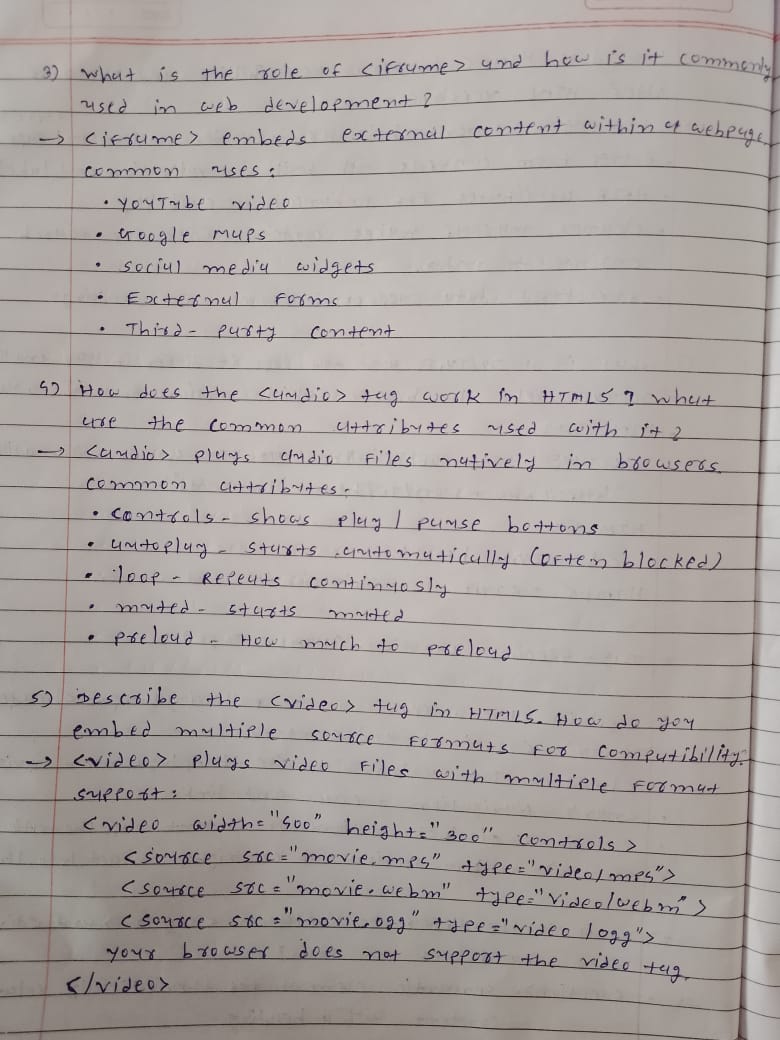 3) what is the role of <iframe> and how is it commonly
used in web development?
→ <iframe> embeds external content within a webpage.
common uses:
• YouTube video
• Google Maps
• social media widgets
• External Forms
• Third-party content
4) How does the <audio> tag work in HTML5? what
are the common attributes used with it?
→ <audio> plays audio files natively in browsers.
common attributes:
• controls - shows play / pause bottons
• autoplay - starts automatically (often blocked)
• loop - Repeats continuosly
• muted - starts muted
• preload - How much to preload
5) Describe the <video> tag in HTML5. How do you
embed multiple source formats for compatibility.
→ <video> plays video files with multiple format
support:
<video width="400" height="300" controls>
<source src="movie.mp4" type="video/mp4">
<source src="movie.webm" type="video/webm">
<source src="movie.ogg" type="video/ogg">
your browser does not support the video tag.
</video>